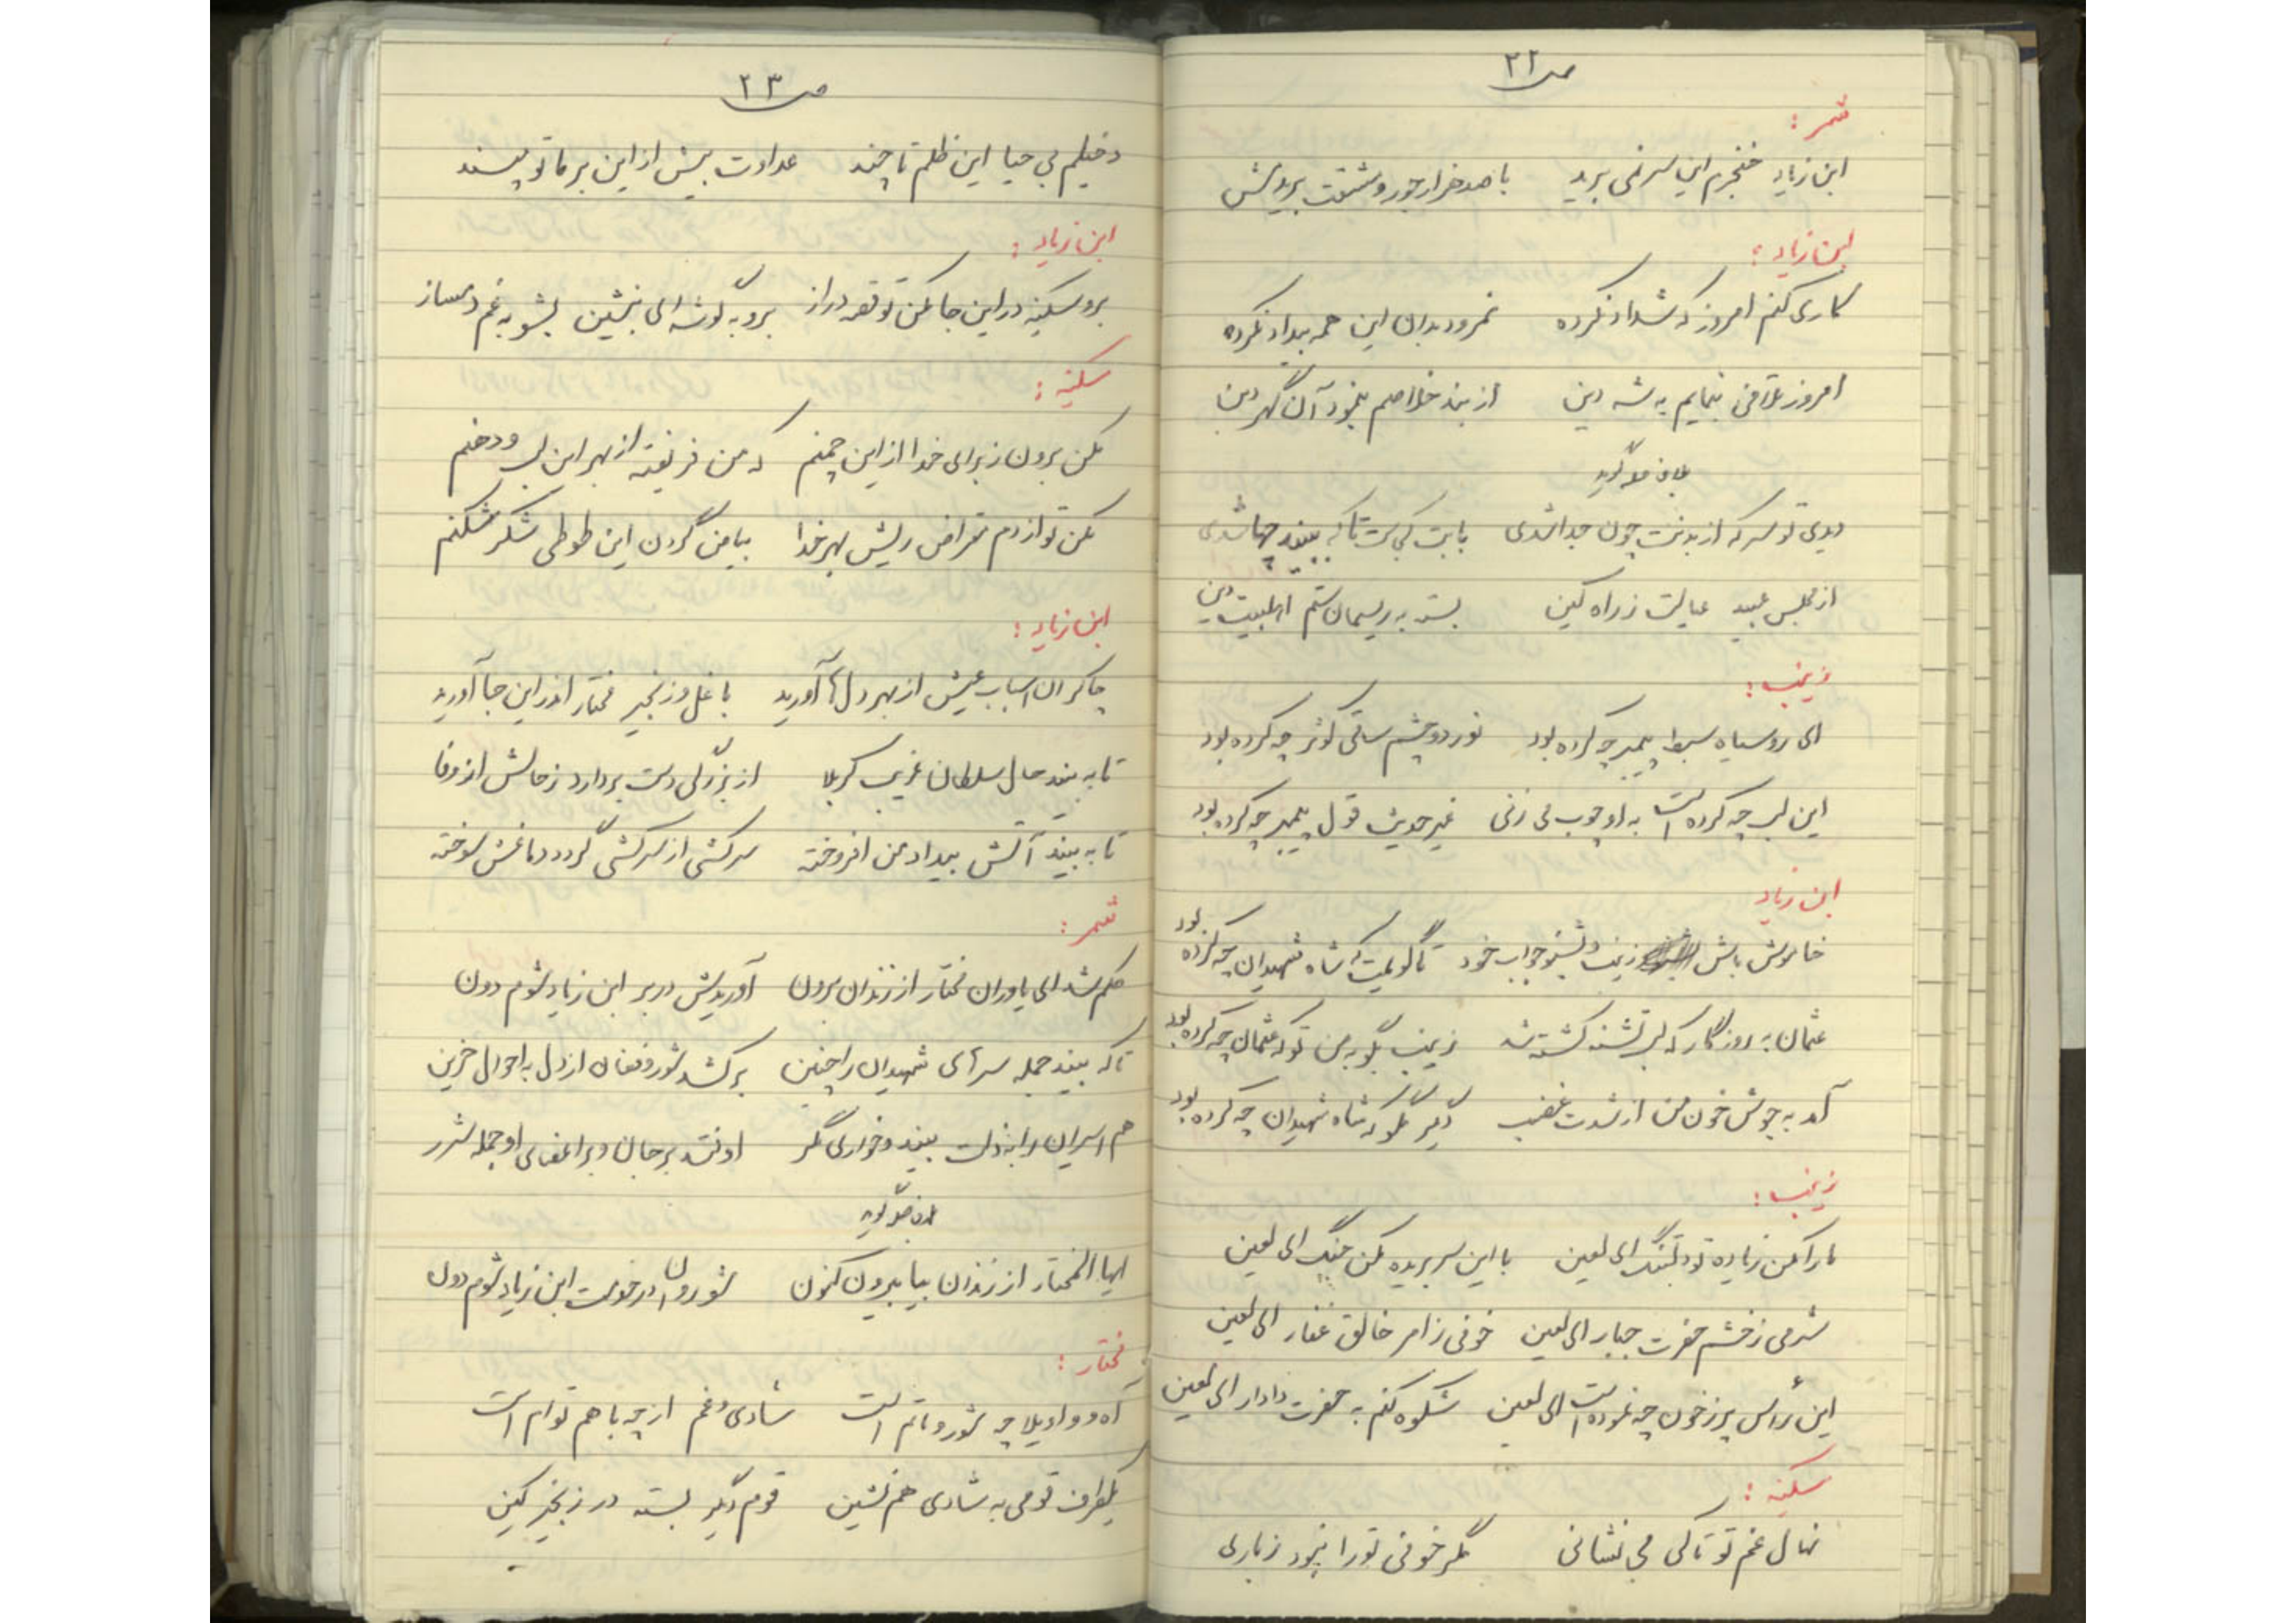 ص ۲۲
شمر :
ابن زیاد خنجرم این سر نمی برد با صد هزار جور و مشقت بریدمش
ابن زیاد :
کاری کنم امروز که شداد نکرده نمرود بدان این همه بیداد نکرده
امروز تلافی بنمایم به شه دین از بند خلاصم بنمود آن گهر دین
دیدی تو سر که از بدنت چون جدا شدی بابت کی است تا که ببیند چها شدی
از مجلس عبید عیالت ز راه کین بسته به ریسمان ستم اهلبیت دین
زینب :
ای رو سیاه سبط پیمبر چه کرده بود نور دو چشم ساقی کوثر چه کرده بود
این لب چه کرده است به او چوب می زنی غیر حدیث قول پیمبر چه کرده بود
ابن زیاد
خاموش باش زینب و بشنو جواب خود تا گویمت که شاه شهیدان چه کرده بود
عثمان به روزگار که لب تشنه کشته شد زینب بگو به من تو که عثمان چه کرده بود
آمد به جوش خون من از شدت غضب دیگر مگو که شاه شهیدان چه کرده بود
زینب :
ما را مکن زیاده تو دلتنگ ای لعین با این سر بریده مکن جنگ ای لعین
شرمی ز خشم حضرت جبار ای لعین خوفی ز امر خالق غفار ای لعین
این رأس پر ز خون چه نموده است ای لعین شکوه کنم به حضرت دادار ای لعین
سکینه :
نهال غم تو تا کی می نشانی مگر خوفی تو را نبود ز باری
ص ۲۳
دخیلم بی حیا این ظلم تا چند عداوت بیش از این بر ما تو مپسند
ابن زیاد :
برو سکینه در این جا مکن تو قصه دراز برو به گوشه ای بنشین بشو به غم دمساز
سکینه :
مکن برون ز برای خدا از این چمنم که من فریفته از بهر این لب و دهنم
مکن تو از دم مقراض ریش بهر خدا بیا مزن گردن این طوطی شکر شکنم
ابن زیاد :
چاکران اسباب عیش از بهر دل ها آورید با غل و زنجیر مختار اندر این جا آورید
تا به بیند حال سلطان غریب کربلا از بزرگی دست بردارد ز حالش از وفا
تا به بیند آتش بیداد من افروخته سرکشی از سرکشی گردد دماغش سوخته
شمر :
حکم شد ای یاوران مختار از زندان برون آوریدش در بر ابن زیاد شوم دون
تا که بیند جمله سرهای شهیدان را چنین بر کشد شور و فغان از دل به احوال حزین
هم اسیران را به ذلت بیند و خواری مگر اوفتد بر جان و بر اعضای او جمله شرر
ایها المختار از زندان بیا بیرون کنون شو روان درخواست ابن زیاد شوم دون
مختار :
آه و واویلا چه شور و ماتم است شادی و غم از چه با هم توام است
یکطرف قومی به شادی هم نشین قوم دیگر بسته در زنجیر کین